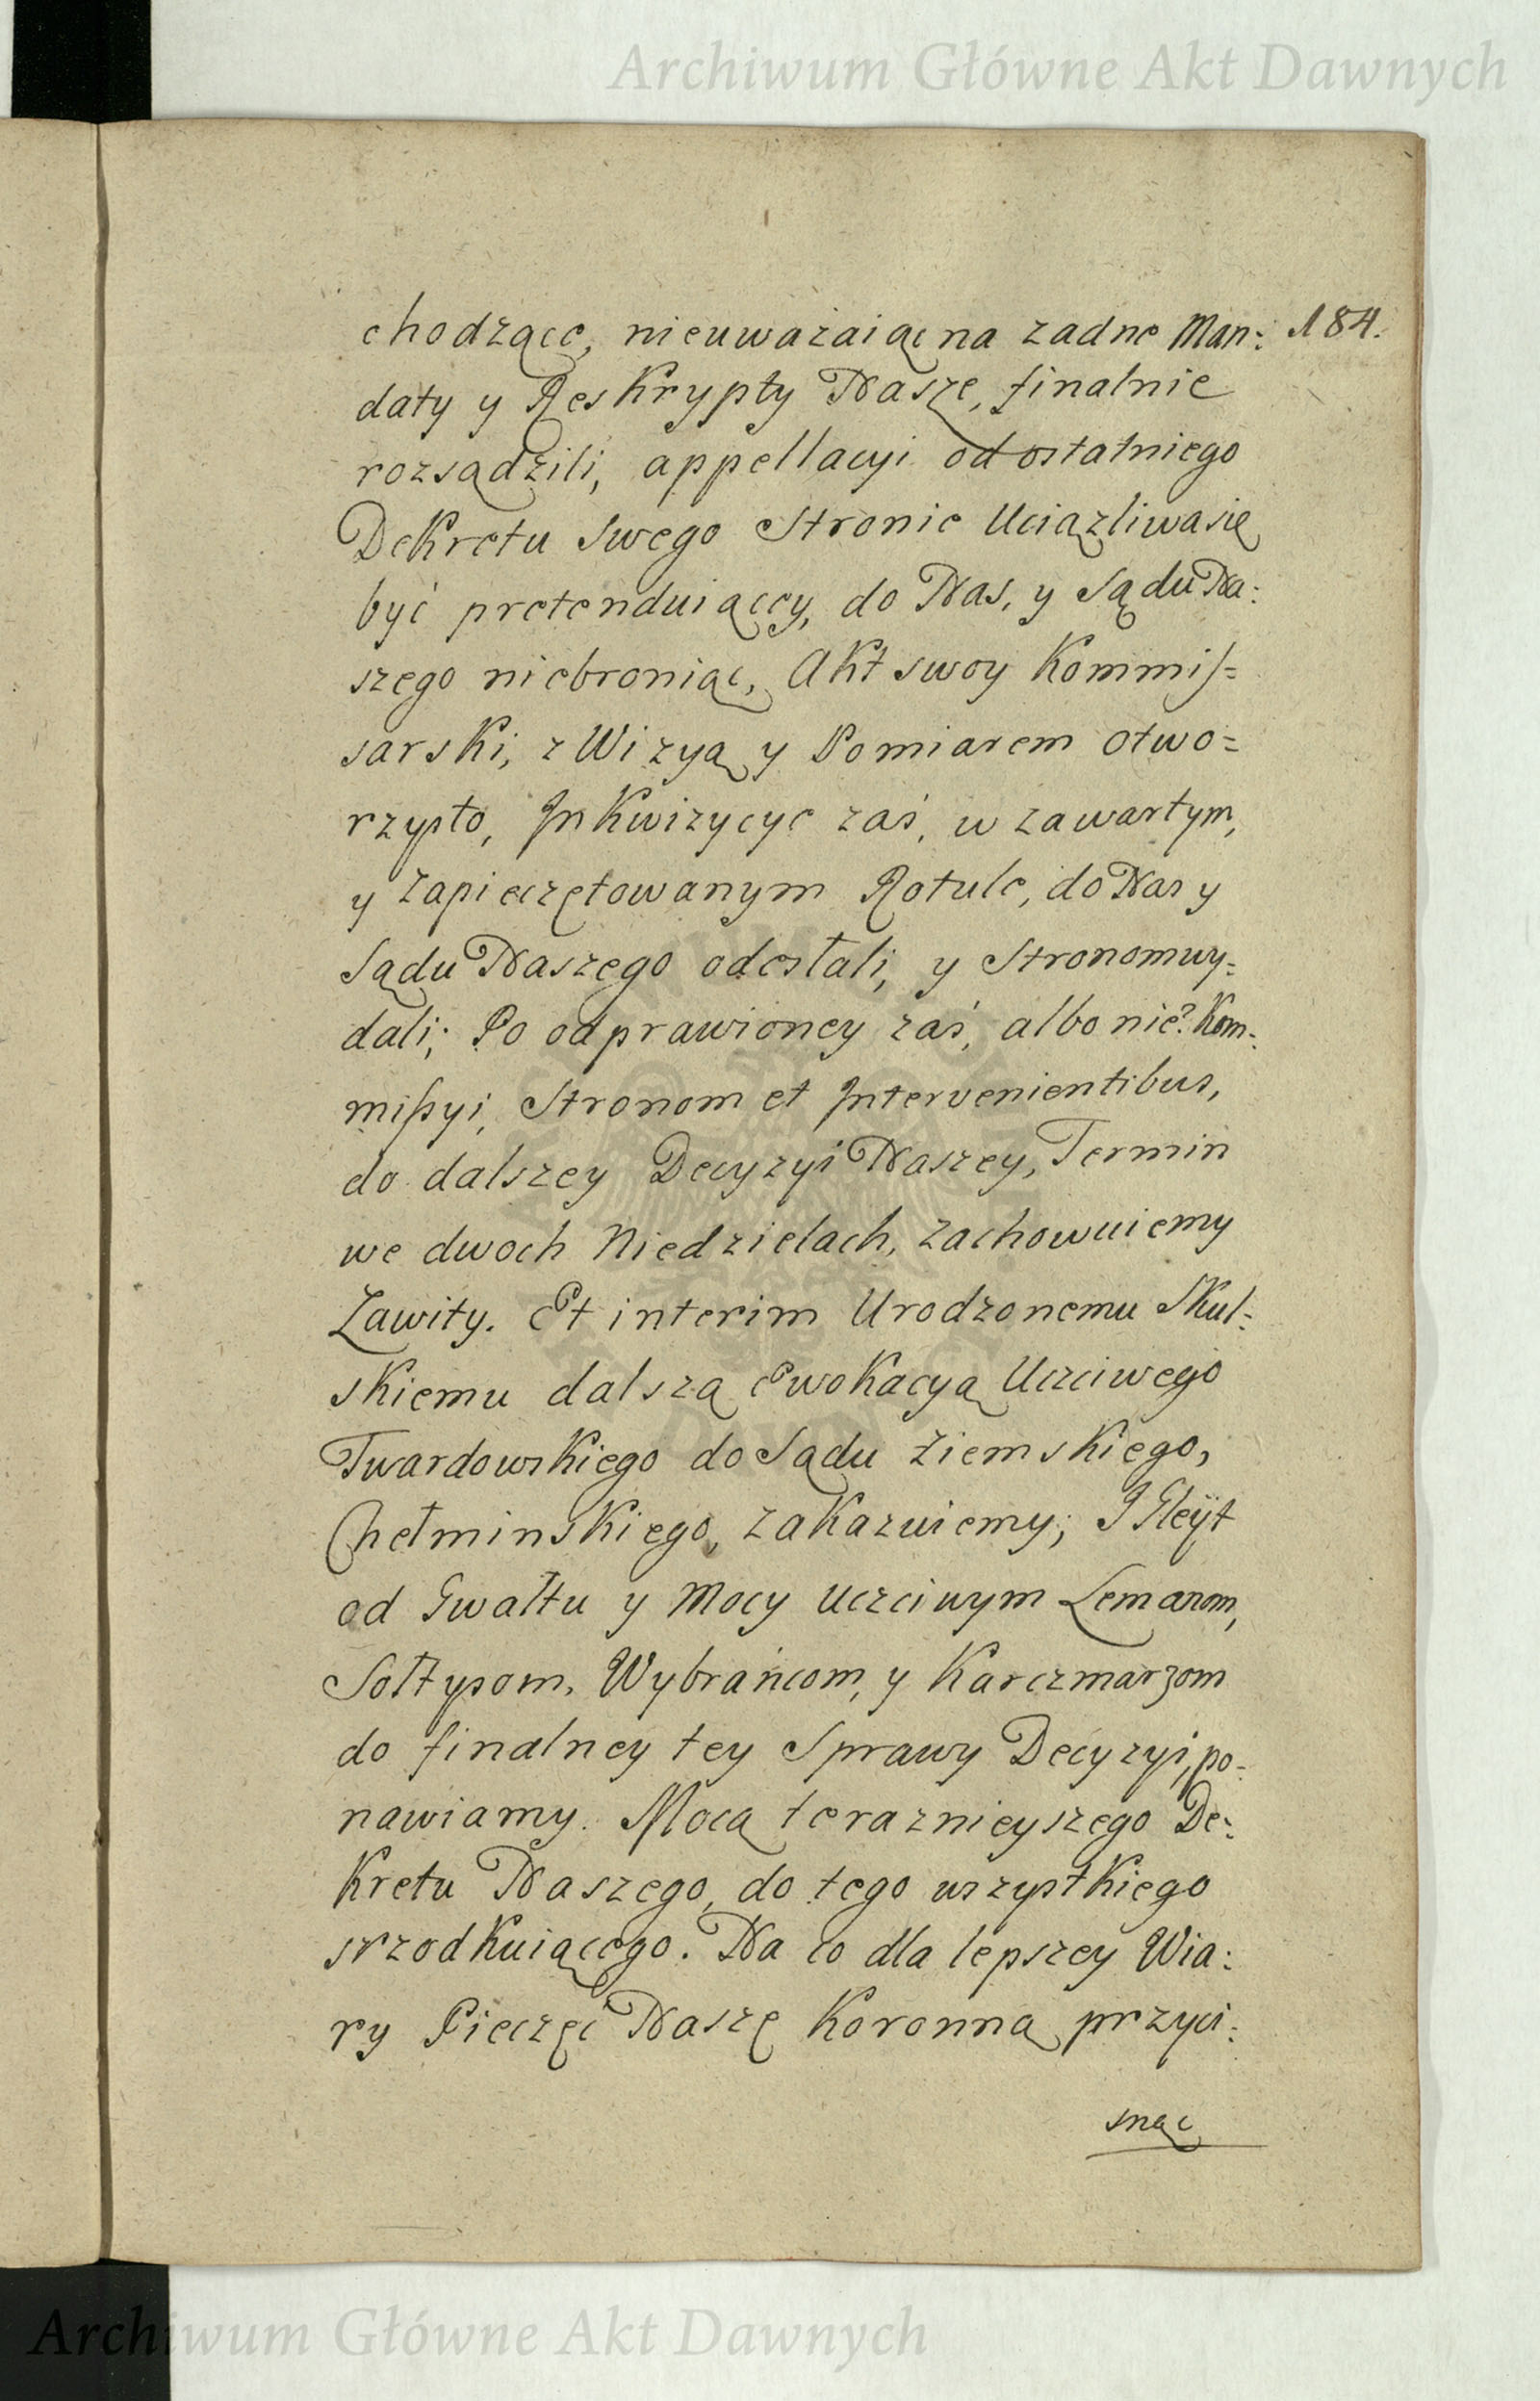 Archiwum Główne Akt Dawnych
184.
chodzące, nieuważaiąc na zadne Man:
daty y Reskrypty Nasze, finalnie
rozsądzili, appellacyi od ostatniego
Dekretu swego Stronie Uciązliwa się
być pretenduiącey, do Nas, y Sądu Na:
szego niebroniąc, Akt swoy Kommis=
sarski, z Wizyą y Pomiarem otwo=
rzysto, Inkwizycye zaś, w zawartym,
y zapieczętowanym Rotule, do Nas y
Sądu Naszego odesłali, y Stronom wy=
dali; Po odprawioney zaś, albo nie? Kom=
missyi, Stronom et Intervenientibus,
do dalszey Decyzyi Naszey, Termin
we dwoch Niedzielach, zachowuiemy
Zawity. Et interim Urodzonemu Skul=
skiemu dalszą Ewokacyą Uczciwego
Twardowskiego do Sądu Ziemskiego,
Chełminskiego, zakazuiemy; I Gleÿt
od Gwałtu y Mocy Uczciwym Lemanom,
Sołtysom, Wybrańcom, y Karczmarzom
do finalney tey Sprawy Decyzyi, po=
nawiamy. Mocą teraznieyszego De=
kretu Naszego, do tego wszystkiego
srzodkuiącego. Na co dla lepszey Wia:
ry Pieczęć Naszę Koronną przyci:
snąc
Archiwum Główne Akt Dawnych